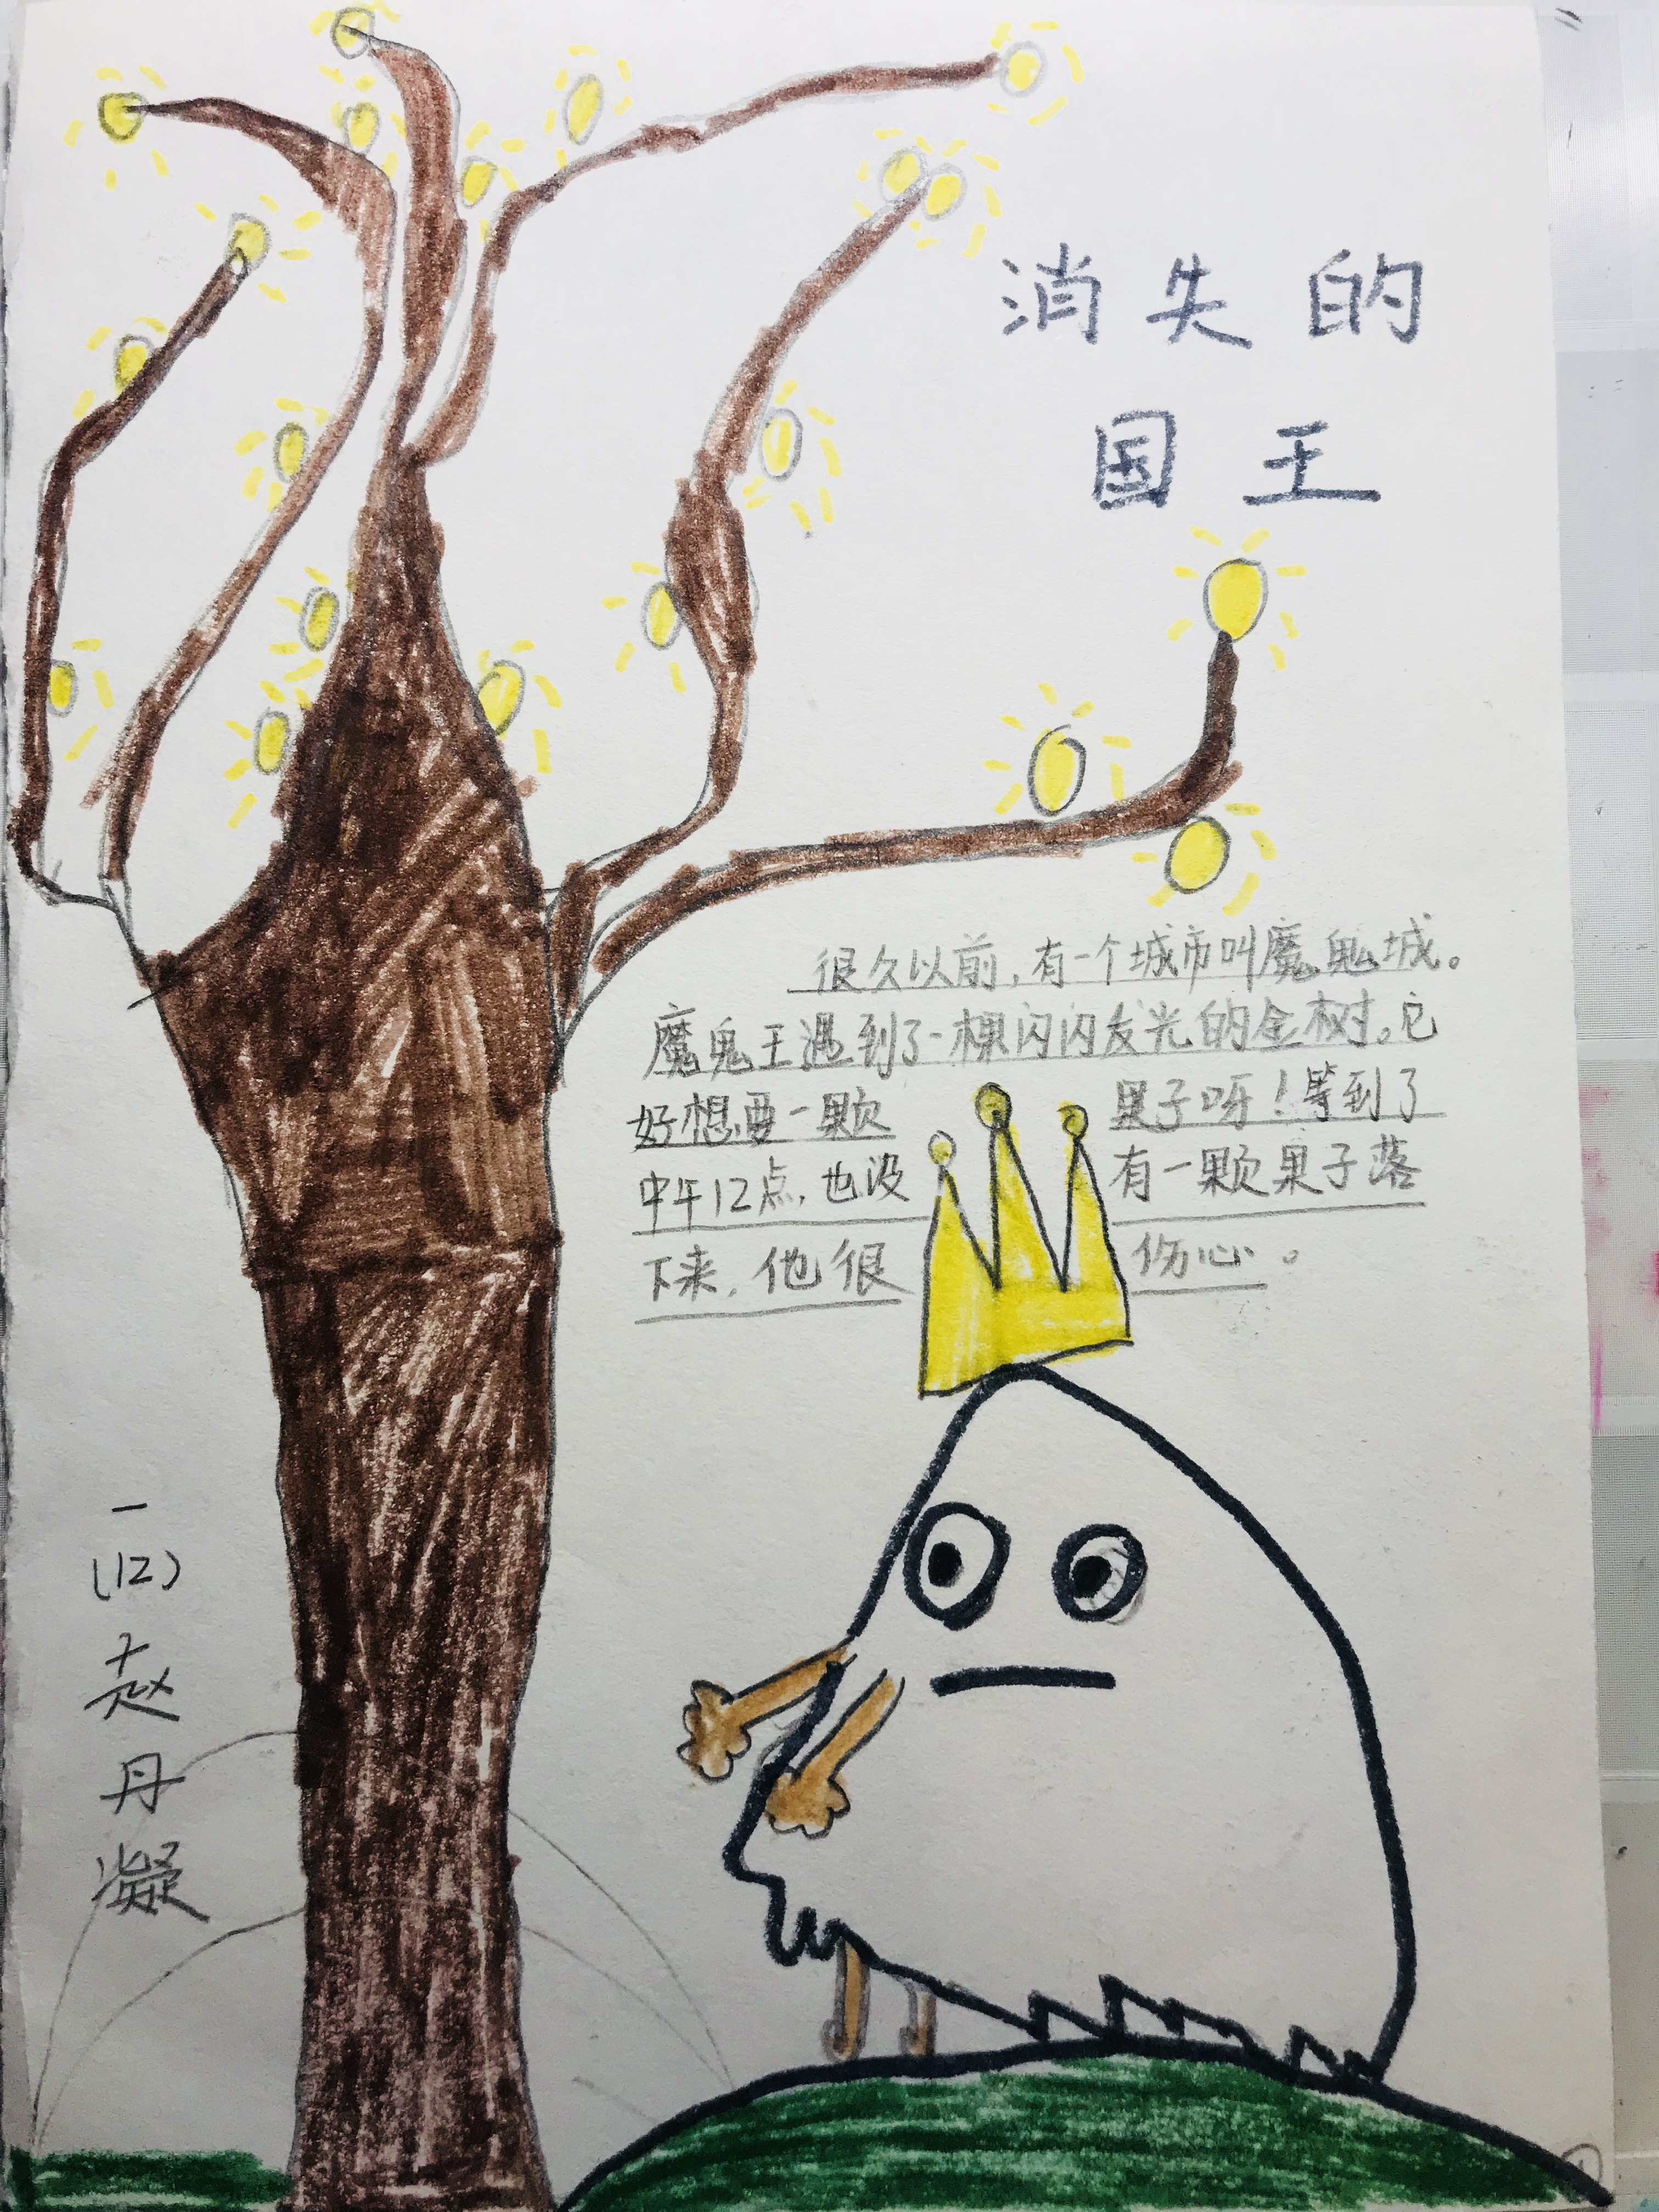 消失的
国王
很久以前，有一个城市叫魔鬼城。
魔鬼王遇到了一棵闪闪发光的金树。它
好想要一颗果子呀！等到了
中午12点，也没有一颗果子落
下来，他很伤心。
一
(12)
赵
丹
凝